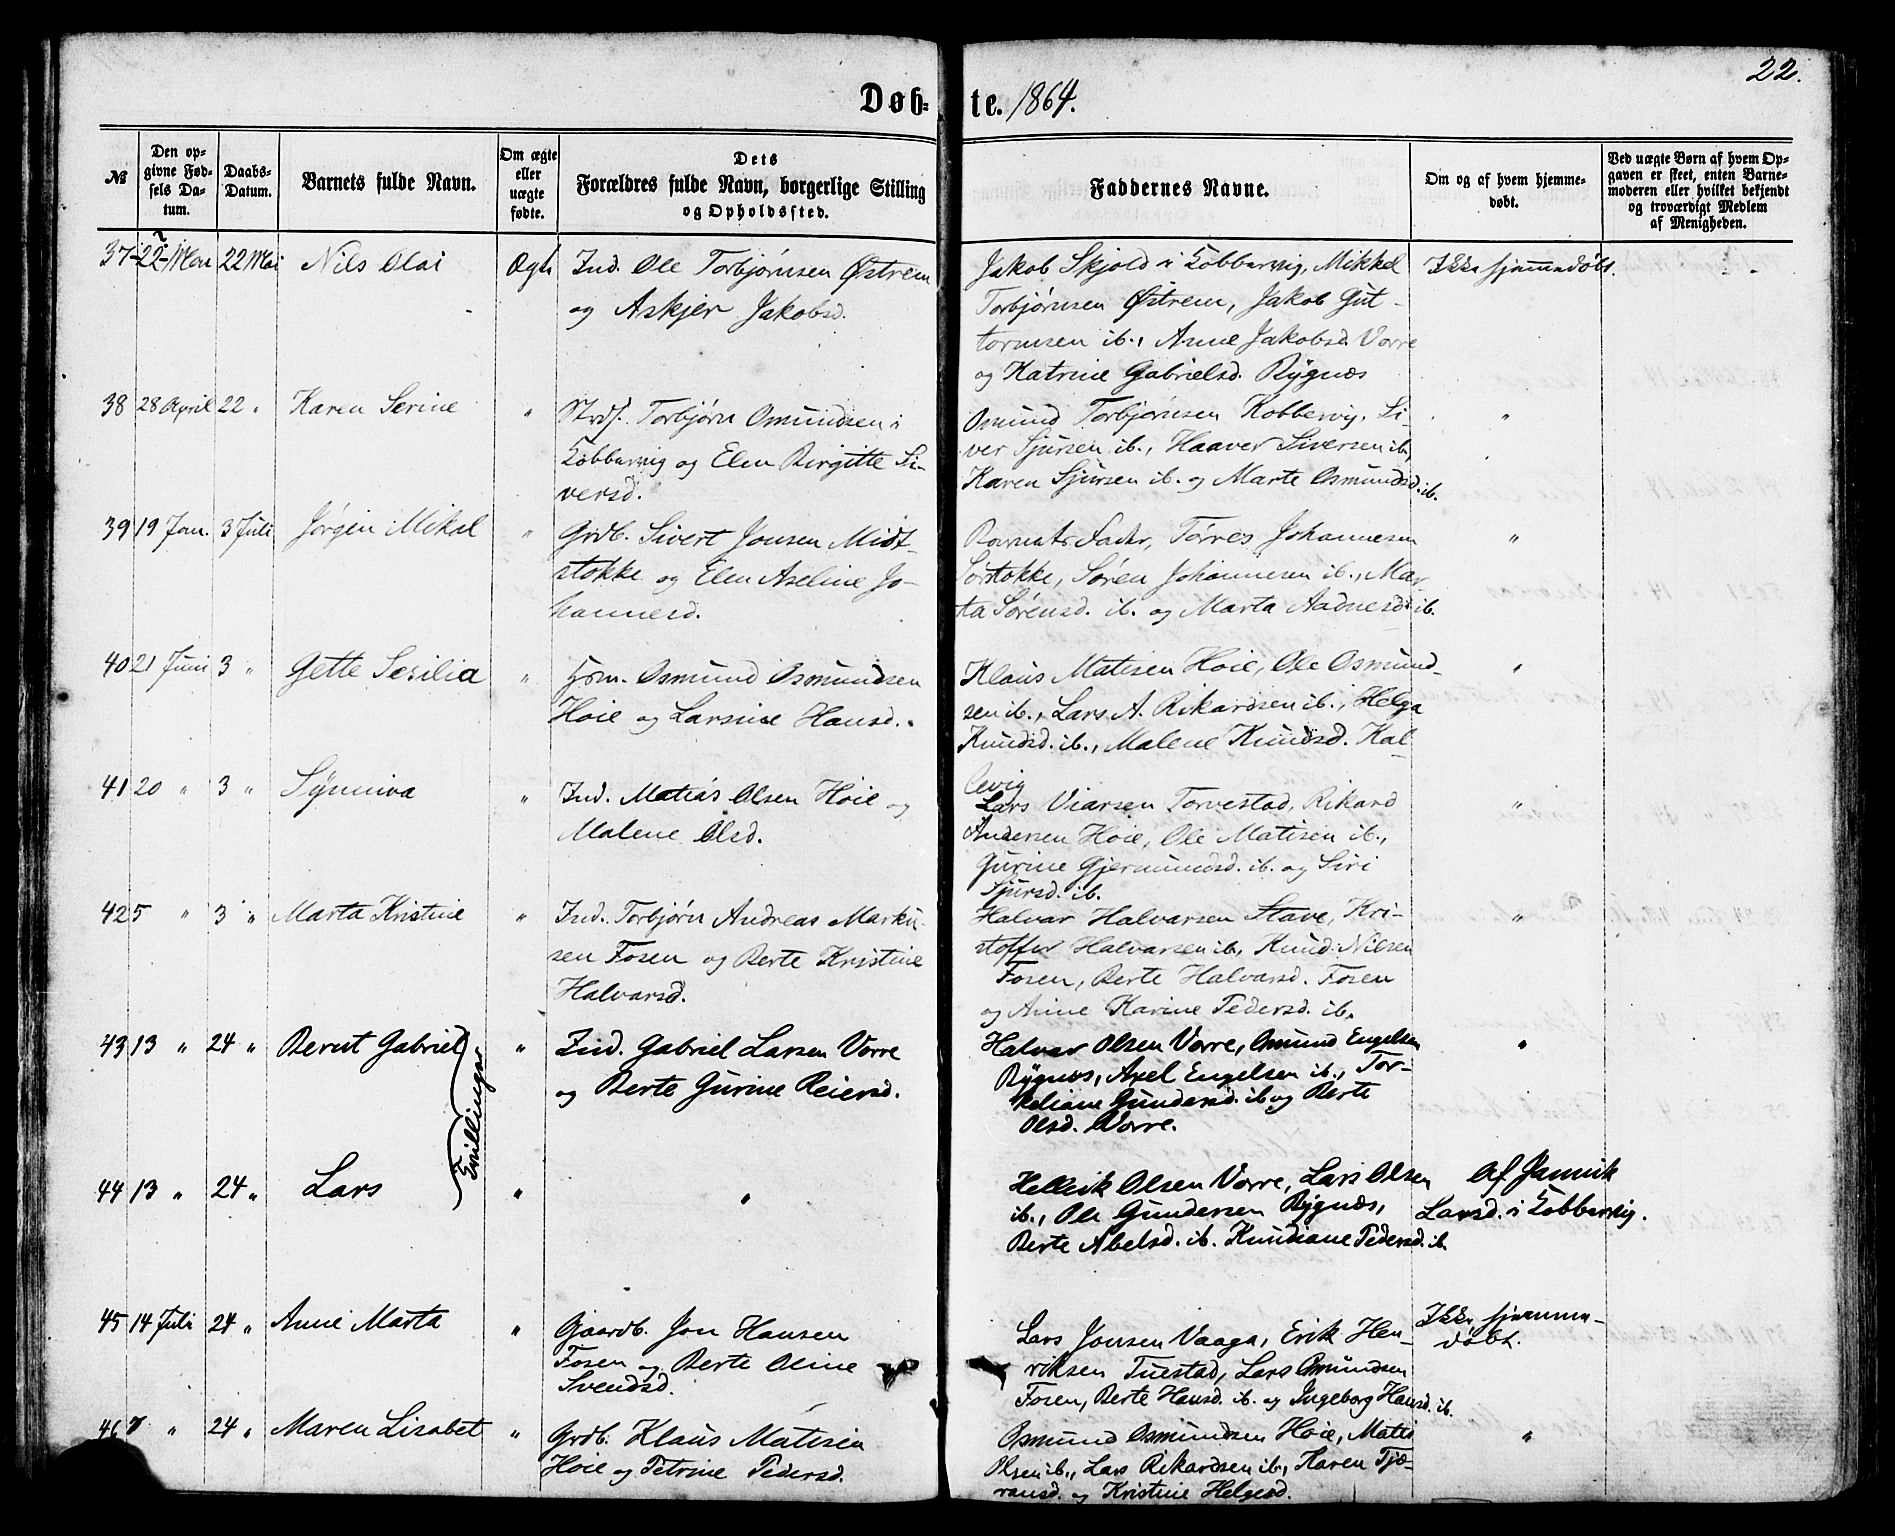 22.
Døb- te. 1864.
№
Den opgivne Fødsels Datum.
Daabs-Datum.
Barnets fulde Navn.
Om ægte eller uægte fødte.
Dets Forældres fulde Navn, borgerlige Stilling og Opholdssted.
Faddernes Navne.
Om og af hvem hjemmedøbt.
Ved uægte Børn af hvem Opgaven er skeet, enten Barnemoderen eller hvilket bekjendt og troværdigt Medlem af Menigheden.
37 22 Mai 22 Mai Nils Olai Ægte Ind. Ole Torbjørnsen Østrem
og Askjer Jakobsd.
Jakob Skjold i Kobbervig, Mikkel
Torbjørnsen Østrem, Jakob Gut-
tormsen ib., Anne Jakobsd. Vorre
og Katrine Gabrielsd. Rygnæs
Ikke hjemmedøbt.
38 28 April 22 " Karen Serine " Strds. Torbjørn Osmundsen i
Kobbervig og Elen Birgitte Si-
versd.
Osmund Torbjørnsen Kobbervig, Si-
ver Sjursen ib., Haaver Siversen ib,
Karen Sjursen ib. og Marte Osmundsd. ib.
"
39 19 Jan. 3 Juli Jørgen Mikal " Grdb. Sivert Jonsen Midt-
stokke og Elen Axeline Jo-
hannesd.
Barnets Fader, Tørres Johannesen
Sørstokke, Søren Johannesen ib., Mar
ta Sørensd. ib. og Marta Aadnesd. ib.
"
40 21 Juni 3 " Gette Serilia " Hsm. Osmund Osmundsen
Hoie og Larsine Hansd.
Klaus Matisen Hoie, Ole Osmund-
sen ib., Lars A. Rikardsen ib., Helga
Knudsd. ib., Malene Knudsd. Kal
levig
"
41 20 " 3 " Synniva " Ind. Matias Olsen Hoie og
Malene Olsd.
Lars Viarsen Torvestad, Rikard
Andersen Hoie, Ole Matisen ib.,
Gurine Gjermundsd. ib. og Siri
Sjursd. ib.
"
42 5 " 3 " Marta Kristine " Ind. Torbjørn Andreas Marku-
sen Fosen og Berte Kristine
Halvarsd.
Halvar Halvarsen Stave, Kri-
stoffer Halvarsen ib., Knud Nilsen
Fosen, Berte Halvarsd. Fosen
og Anne Karine Pedersd. ib.
"
43 13 " 24 " Bernt Gabriel " Ind. Gabriel Larsen Vorre
og Berte Gurine Reiersd.
Halvar Olsen Vorre, Osmund Engelsen
Rygnæs, Axel Engelsen ib., Tor-
keliane Gundersd. ib og Berte
Olsd. Vorre.
"
Tvillinger
44 13 " 24 " Lars " "
Helleik Olsen Vorre, Lars Olsen
ib., Ole Gundersen Rygnæs,
Berte Abelsd. ib. Knudiane Pedersd. ib
Af Jannik
Larsd. i Kobbervig.
45 14 Juli 24 " Anne Marta " Gaardb. Jon Hansen
Fosen og Berte Oline
Svendsd.
Lars Jonsen Vaaga, Erik Hen-
riksen Tuestad, Lars Osmundsen
Fosen, Berte Hansd. ib. og Ingeborg Hansd. ib.
Ikke hjemme-
døbt.
46 7 " 24 " Maren Lisabet " Grdb. Klaus Matisen
Hoie og Petrine Pedersd.
Osmund Osmundsen Hoie, Matis
Olsen ib., Lars Rikardsen ib., Karen Tjæ-
ransd. og Kristine Helgesd.
"